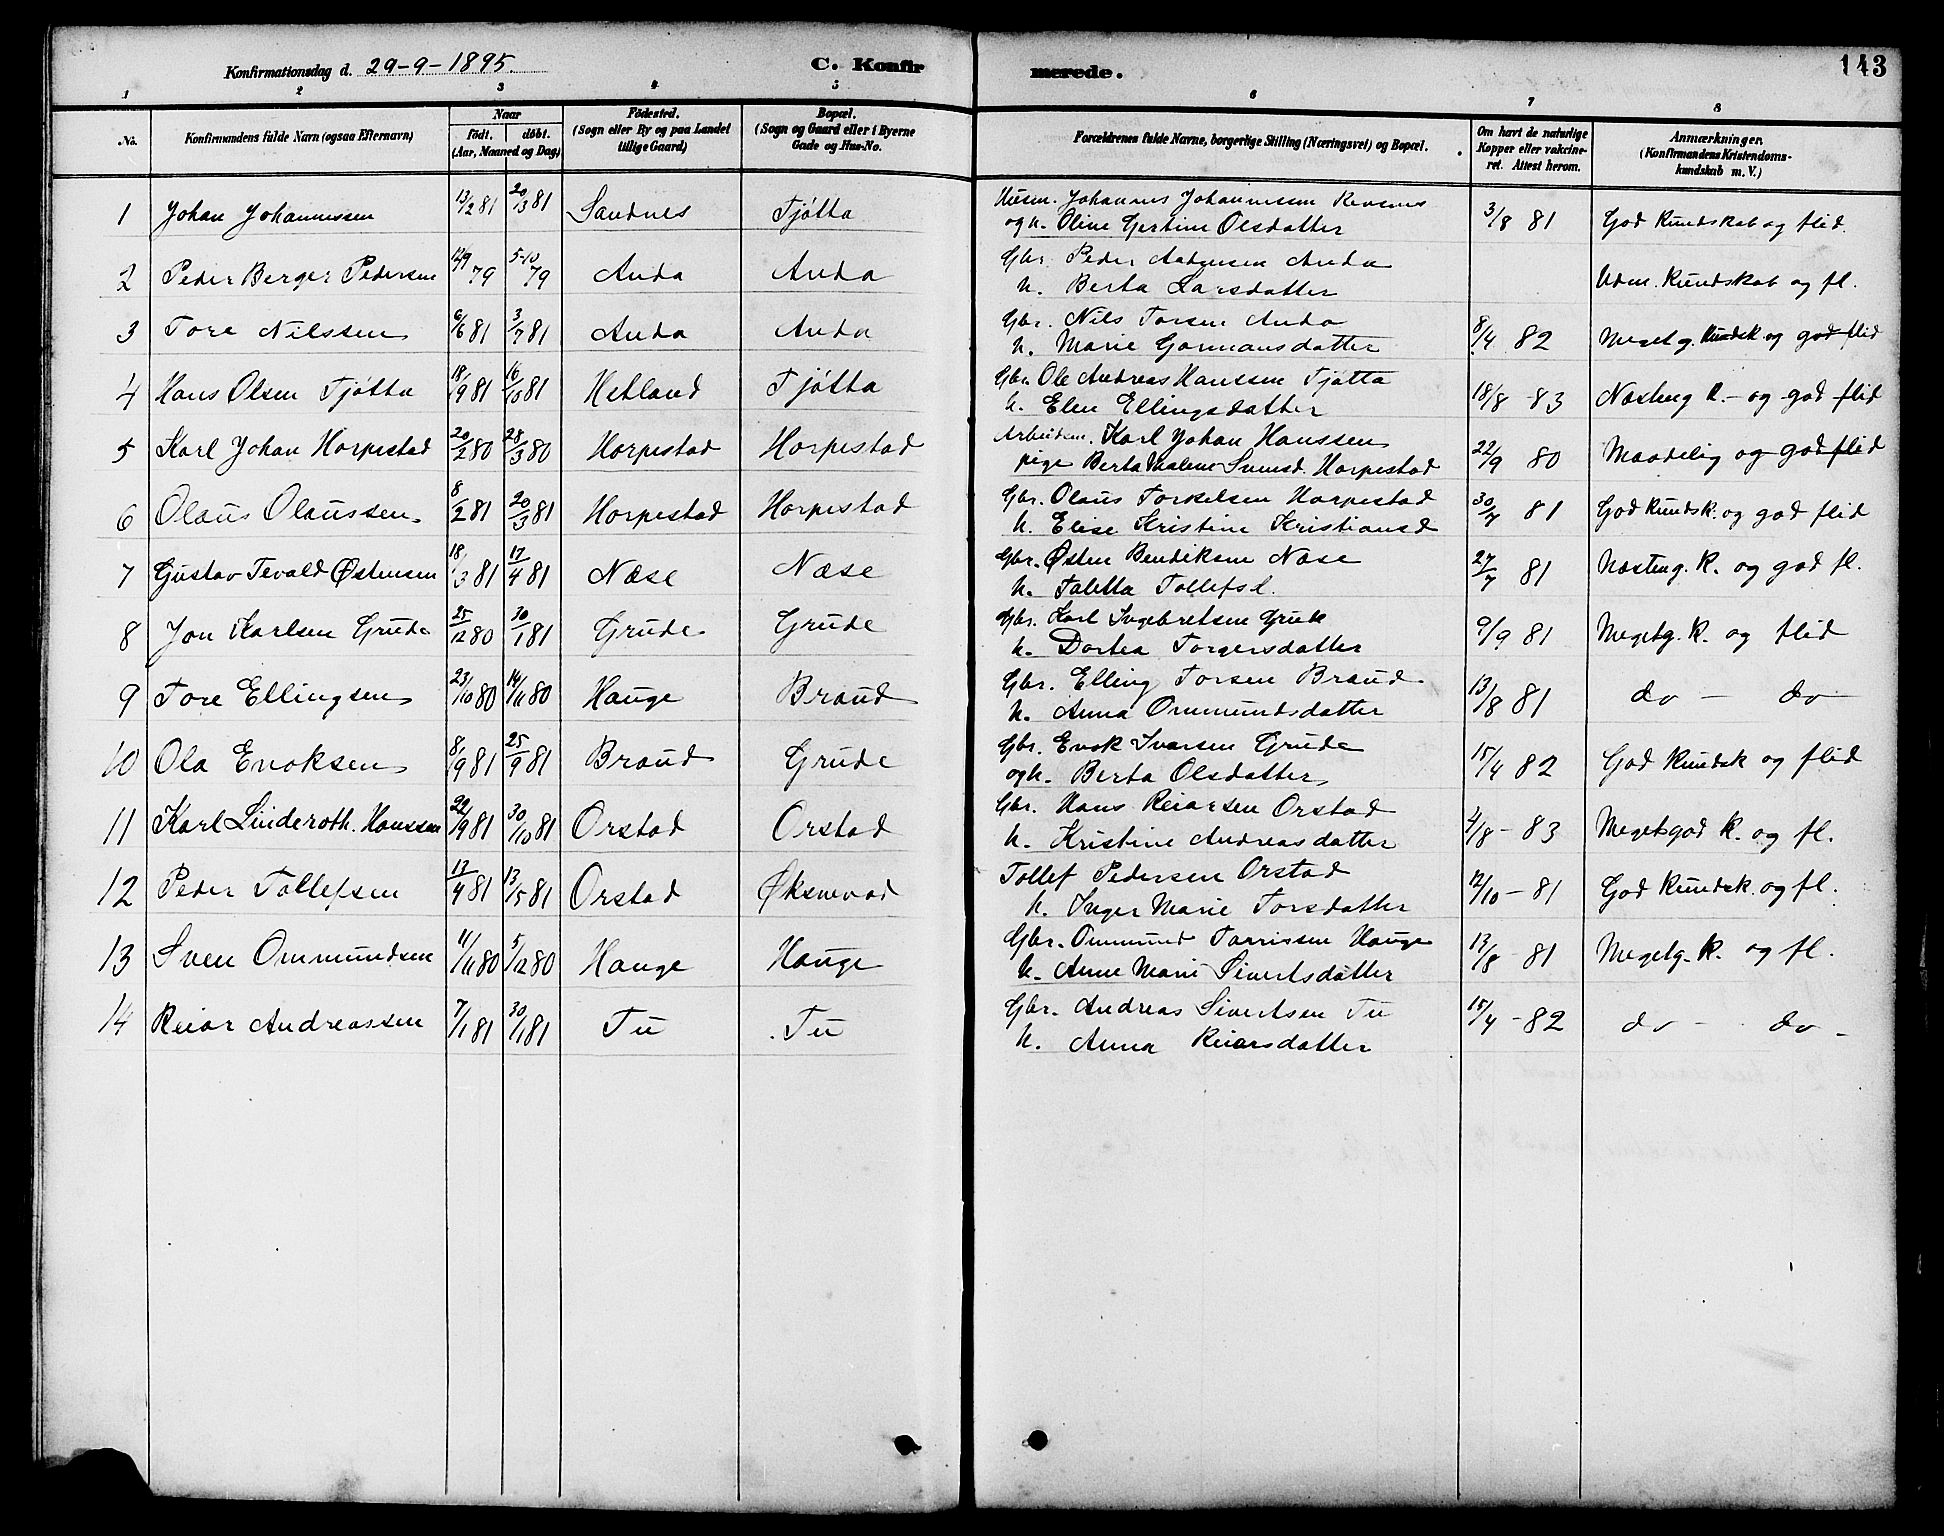 Konfirmationsdag d. 29-9-1895.
C. Konfirmerede.
143
1 2 3 4 5 6 7 8
No.
Konfirmandens fulde Navn (ogsaa Efternavn)
Naar født. døbt. (Aar, Maaned og Dag)
Fødested. (Sogn eller By og paa Landet tillige Gaard)
Bopæl. (Sogn og Gaard eller i Byerne Gade og Hus-No.
Forældrenes fulde Navne, borgerlige Stilling (Næringsvei) og Bopæl.
Om havt de naturlige Kopper eller vakcineret. Attest herom.
Anmærkninger. (Konfirmandens Kristendomskundskab m. V.)
1 Johan Johannessen 13/2 81 20/3 81 Sandnes Tjøtta Husm. Johannes Johannessen Revsnes 3/8 81 God Kundskab og flid.
og h. Oline Gertine Olsdatter
2 Peder Berger Pedersen 12/9 79 5-10 79 Anda Anda Gbr. Peder Andersen Anda Udm. Kundskab og fl.
h. Berta Larsdatter
3 Tore Nilssen 6/6 81 3/7 81 Anda Anda Gbr. Nils Torsen Anda 8/4 82 Meget g. Kundsk. og god flid
h. Marie Gormansdatter
4 Hans Olsen Tjøtta 18/9 81 16/10 81 Hetland Tjøtta Gbr. Ole Andreas Hanssen Tjøtta 18/8 83 Næsten g K. - og god flid
h. Elen Ellingsdatter
5 Karl Johan Horpestad 20/2 80 28/3 80 Horpestad Horpestad Arbeidsm. Karl Johan Hanssen 22/9 80 Maadelig og god flid
pige Berta Malene Svensd. Horpestad
6 Olaus Olaussen. 8/2 81 20/3 81 Horpestad Horpestad Gbr. Olaus Torkelsen Horpestad 30/7 81 God Kundsk. og god flid
h. Elise Kristine Kristiansd
7 Gustav Tevald Østensen 18/3 81 17/4 81 Næse Næse Gbr. Østen Bendiksen Næse 27/7 81 Næsten g. K. og god fl.
h. Taletta Tollefsd.
8 Jon Karlsen Grude 25/12 80 30/1 81 Grude Grude Gbr. Karl Ingebretsen Grude 9/9 81 Meget g. K. og flid
h. Dortea Torgersdatter
9 Tore Ellingsen 23/10 80 14/11 80 Hauge Braud Gbr. Elling Torsen Braud 13/8 81 do - do
h. Anna Ommundsdatter
10 Ola Enoksen 8/9 81 25/9 81 Braud Grude Gbr. Enok Ivarsen Grude 15/4 82 God Kundsk og flid
og h. Berta Olsdatter
11 Karl Linderoth. Hanssen 22/9 81 30/10 81 Orstad Orstad Gbr. Hans Reiarsen Orstad 4/8 - 83 Meget god K. og fl.
h. Kristine Andreasdatter
12 Peder Tollefsen 17/4 81 13/5 81 Orstad Øksnevad Tollef Pedersen Orstad 12/10 - 81 God Kundsk. og fl.
h. Inger Marie Torsdatter
13 Sven Ommundsen 11/11 80 5/12 80 Hauge Hauge Gbr. Ommund Torrissen Hauge 13/8 - 81 Meget g. K. og fl.
h. Anne Marie Sivertsdatter
14 Reiar Andreassen 7/1 81 30/1 81 Tu Tu Gbr. Andreas Sivertsen Tu 15/4 - 82 do - do -
h. Anna Reiarsdatter